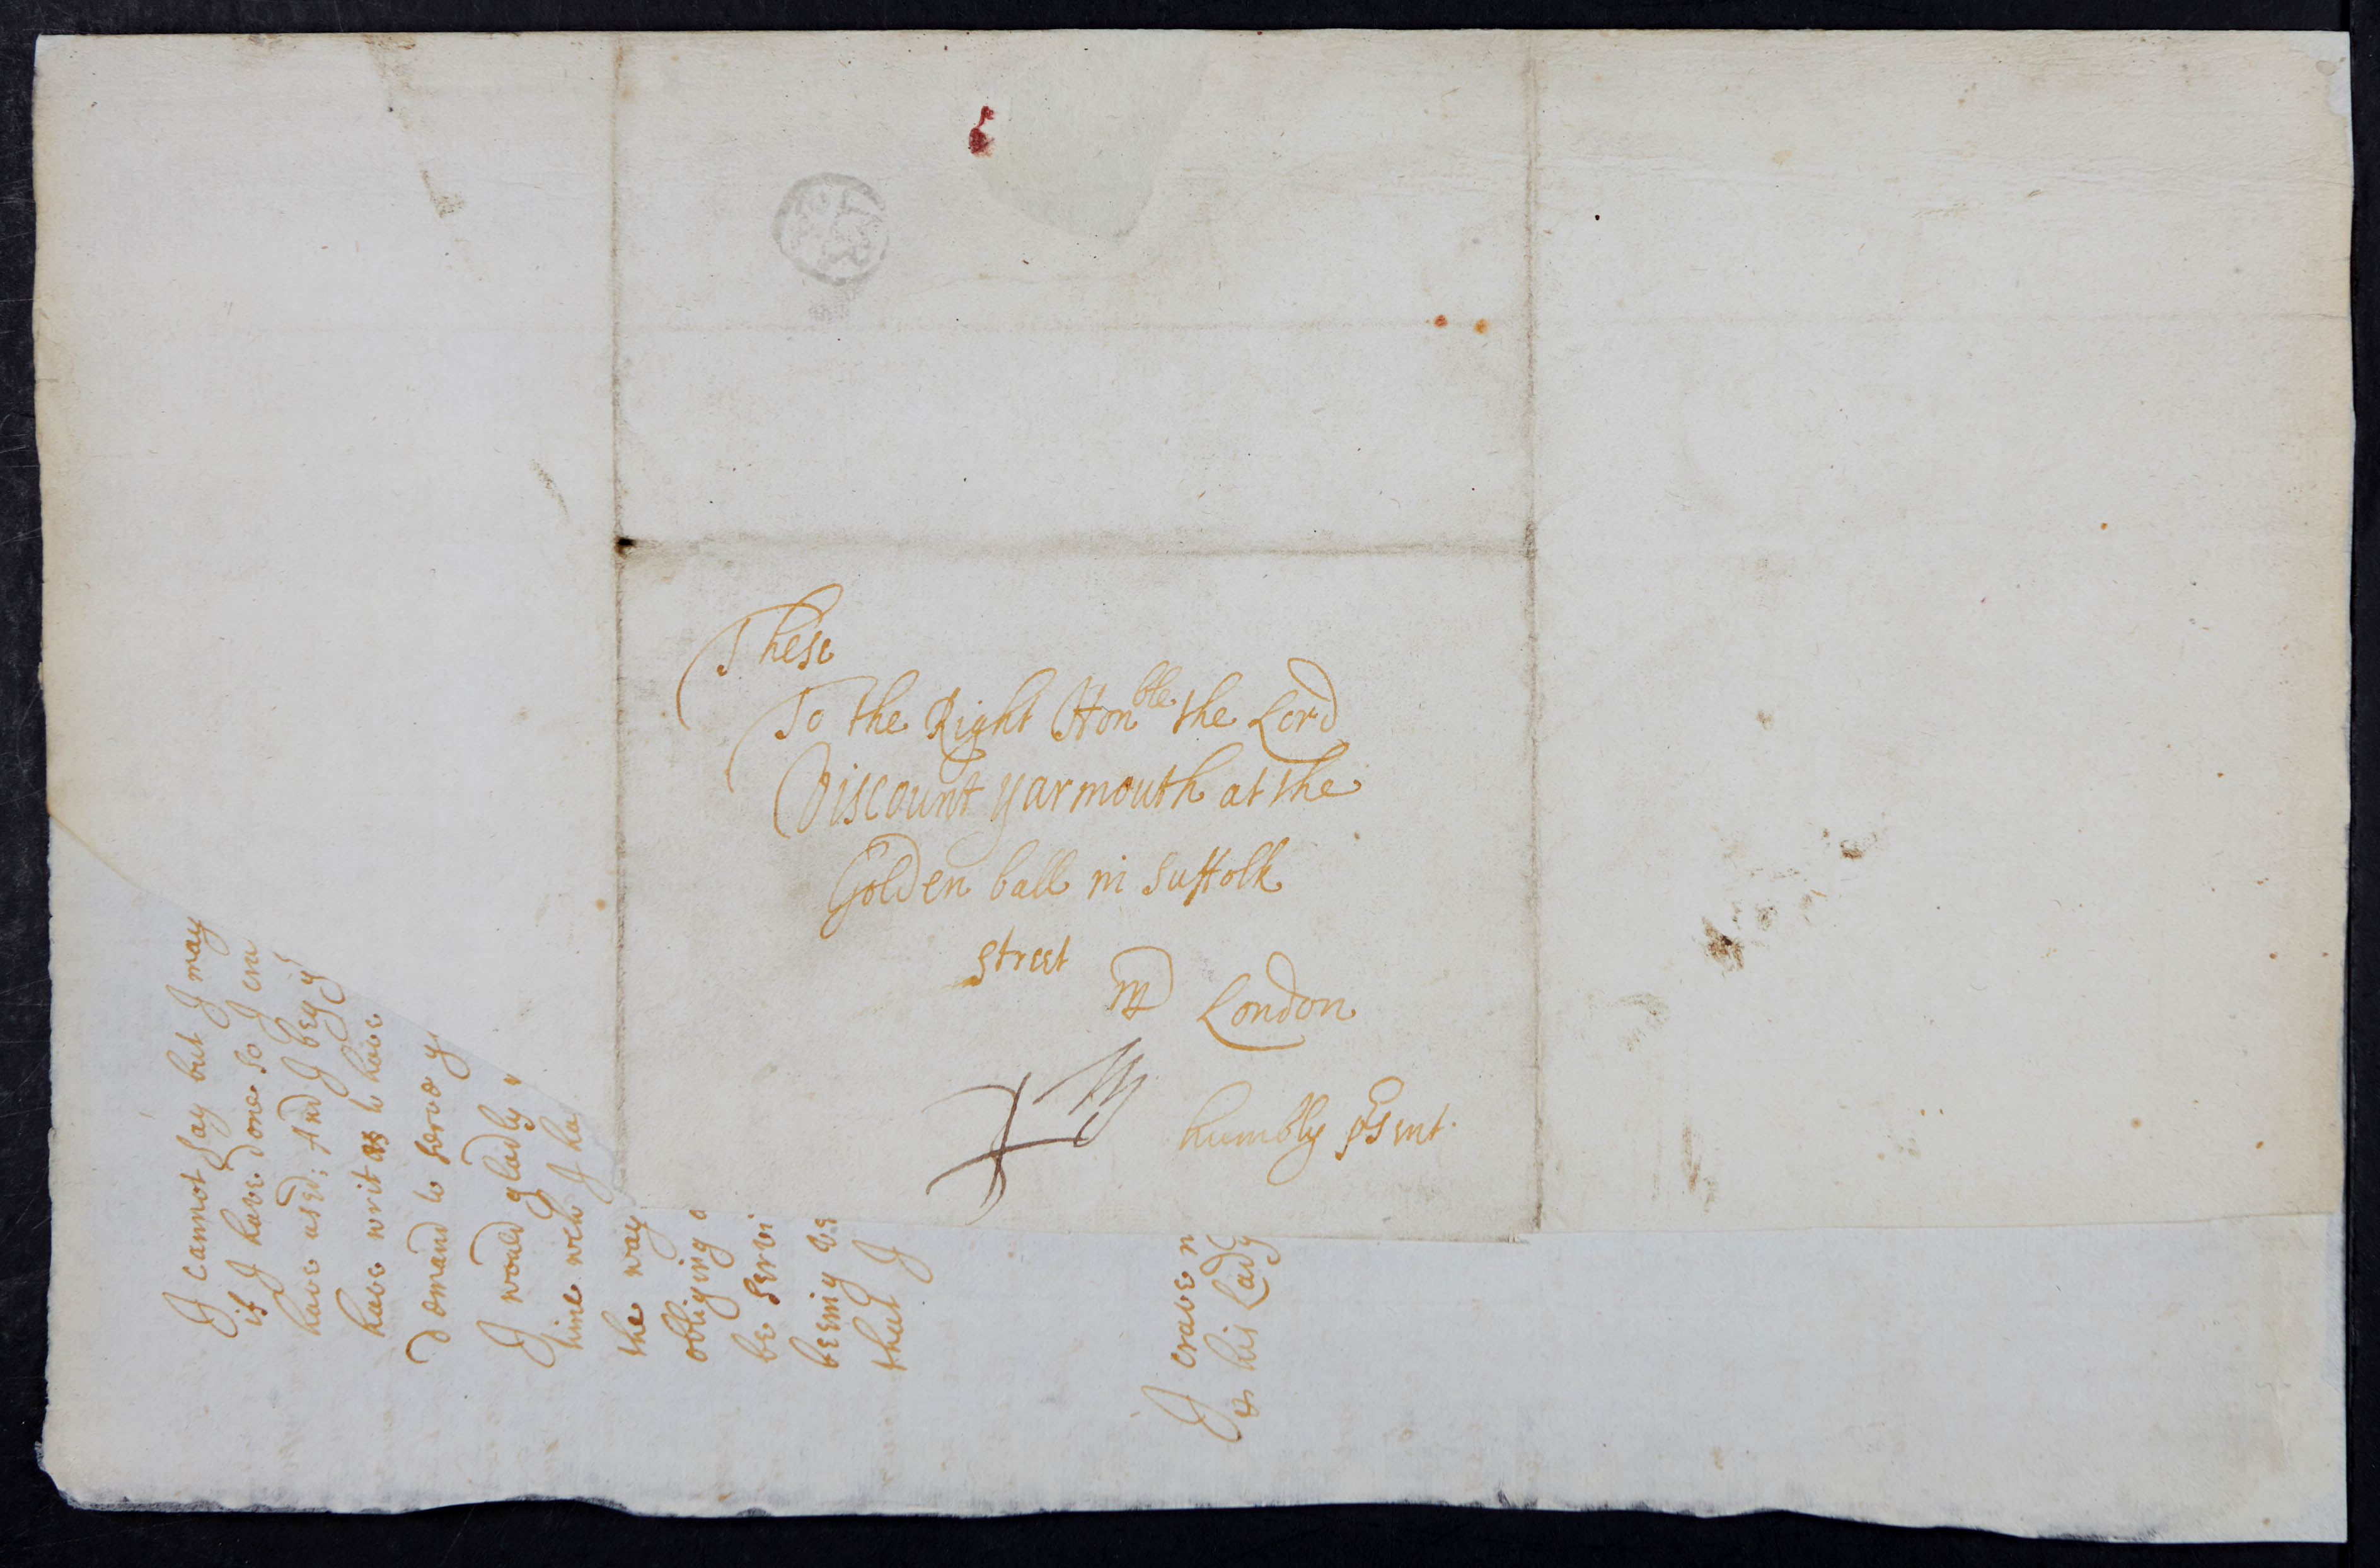 These
To the Right Honble the Lord
Viscount yarmouth at the
Golden ball in Suffolk
street
in London
humbly psent.
I cannot say but I may
if I have done so I
have used: And I beg yr
have writ to have
demand to serve y
I would gladly
time wch I ha
the way
obliging
be servi
beeing
that I
I crave
& his Lady